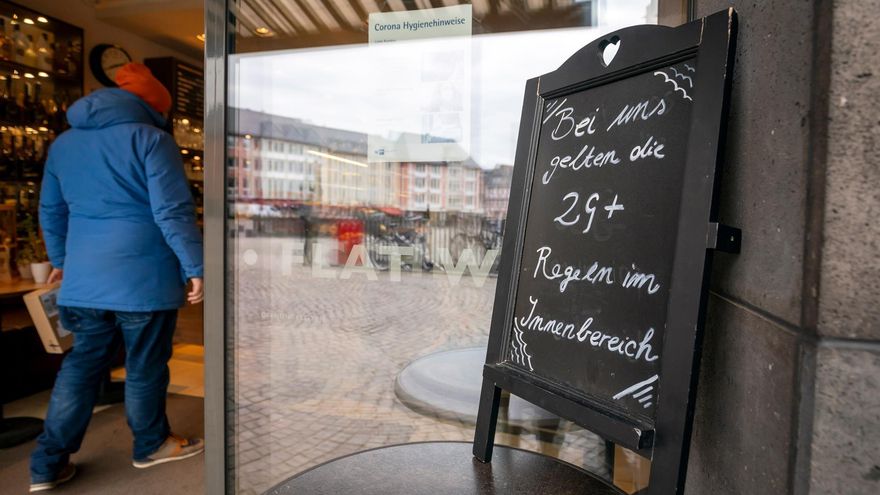 Corona Hygienehinweise
Bei uns
gelten die
2G+
Regeln im
Innenbereich
FLAT W